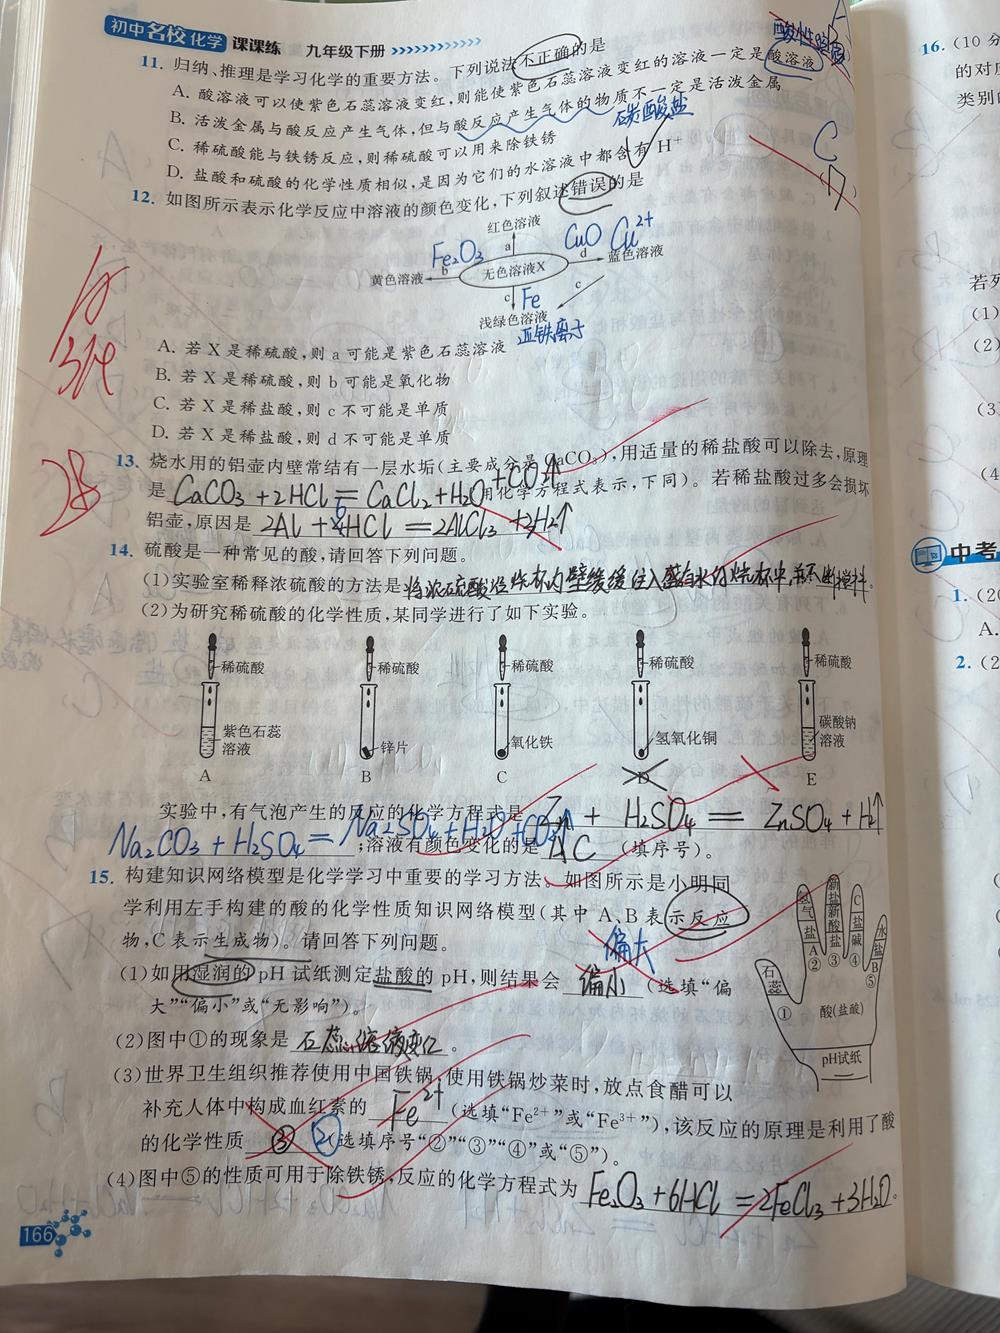 初中名校化学 课课练 九年级下册 >>>>>>>>>>>>
酸性 溶液
11. 归纳、推理是学习化学的重要方法。下列说法不正确的是
A. 酸溶液可以使紫色石蕊溶液变红,则能使紫色石蕊溶液变红的溶液一定是酸溶液
B. 活泼金属与酸反应产生气体,但与酸反应产生气体的物质不一定是活泼金属
碳酸盐
C. 稀硫酸能与铁锈反应,则稀硫酸可以用来除铁锈
C
D. 盐酸和硫酸的化学性质相似,是因为它们的水溶液中都含有 H⁺
12. 如图所示表示化学反应中溶液的颜色变化,下列叙述错误的是
红色溶液
a
Fe₂O₃
CuO Cu²⁺
黄色溶液 b 无色溶液X d 蓝色溶液
c Fe c
浅绿色溶液
亚铁离子
A. 若 X 是稀硫酸,则 a 可能是紫色石蕊溶液
B. 若 X 是稀硫酸,则 b 可能是氧化物
C. 若 X 是稀盐酸,则 c 不可能是单质
D. 若 X 是稀盐酸,则 d 不可能是单质
13. 烧水用的铝壶内壁常结有一层水垢(主要成分是 CaCO₃),用适量的稀盐酸可以除去,原理
是 CaCO₃ + 2HCl = CaCl₂ + H₂O + CO₂↑ 用化学方程式表示,下同)。若稀盐酸过多会损坏
铝壶,原因是 2Al + 6HCl = 2AlCl₃ + 3H₂↑
14. 硫酸是一种常见的酸,请回答下列问题。
(1)实验室稀释浓硫酸的方法是 将浓硫酸沿烧杯内壁缓缓注入盛有水的烧杯中,并不断搅拌。
(2)为研究稀硫酸的化学性质,某同学进行了如下实验。
稀硫酸 稀硫酸 稀硫酸 稀硫酸 稀硫酸
紫色石蕊溶液 锌片 氧化铁 氢氧化铜 碳酸钠溶液
A B C D E
实验中,有气泡产生的反应的化学方程式是 Zn + H₂SO₄ = ZnSO₄ + H₂↑
Na₂CO₃ + H₂SO₄ = Na₂SO₄ + H₂O + CO₂↑ ;溶液有颜色变化的是 AC (填序号)。
15. 构建知识网络模型是化学学习中重要的学习方法。如图所示是小明同
学利用左手构建的酸的化学性质知识网络模型(其中 A、B 表示反应
物,C 表示生成物)。请回答下列问题。
偏大
(1)如用湿润的 pH 试纸测定盐酸的 pH,则结果会 偏小 (选填“偏
大”“偏小”或“无影响”)。
(2)图中①的现象是 石蕊溶液变红 。
(3)世界卫生组织推荐使用中国铁锅,使用铁锅炒菜时,放点食醋可以
补充人体中构成血红素的 Fe²⁺ (选填“Fe²⁺”或“Fe³⁺”),该反应的原理是利用了酸
的化学性质 ③ ② (选填序号“②”“③”“④”或“⑤”)。
(4)图中⑤的性质可用于除铁锈,反应的化学方程式为 Fe₂O₃ + 6HCl = 2FeCl₃ + 3H₂O。
石蕊 ①
氢气 盐 A ②
新盐 新酸 盐 ③
C 盐 碱 ④
水 盐 B ⑤
酸(盐酸)
pH试纸
166
16. (10 分
的对
类别的
若死
(1)
(2)
(3
(4
中考
1. (20
A.
2. (2